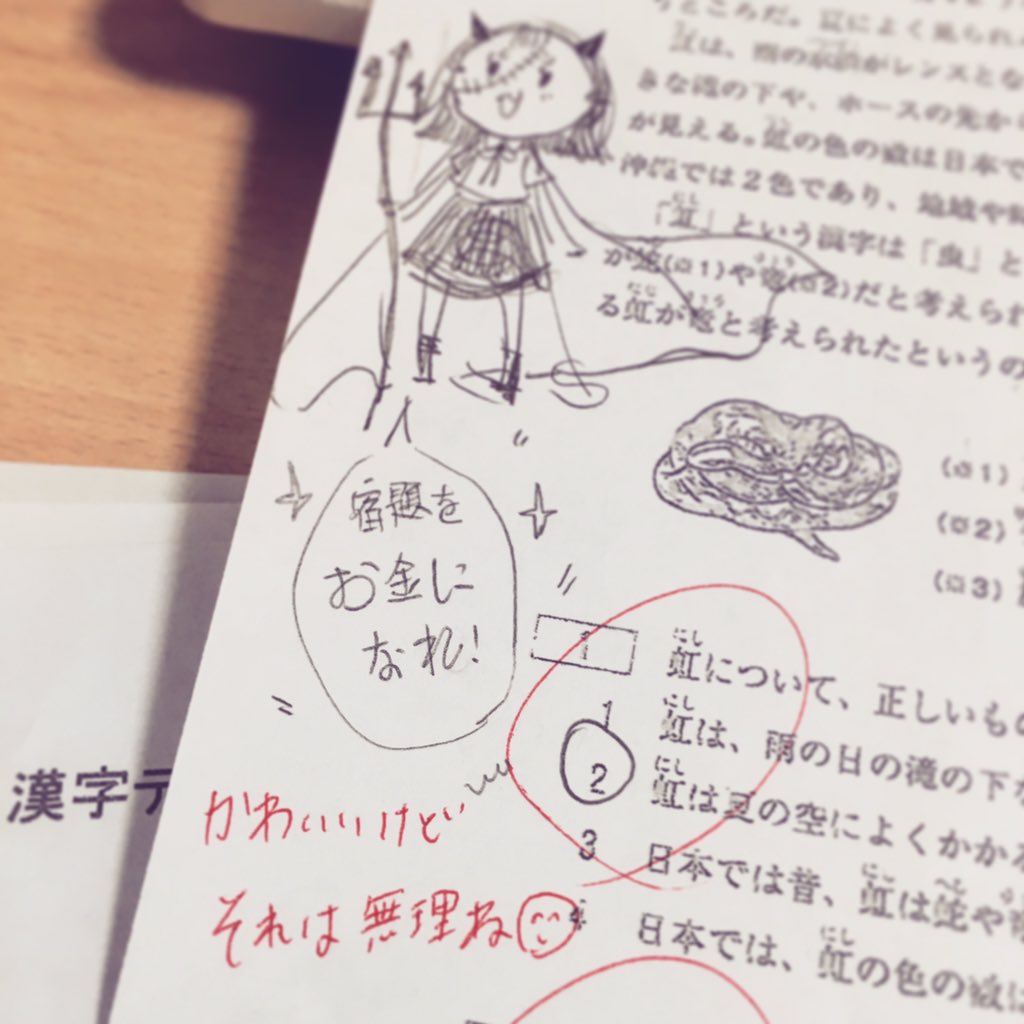 りところだ。虹によく見られ
虹は、雨の水滴がレンズとな
きな滝の下や、ホースの先から
が見える。虹の色の数は日本で
沖縄では2色であり、地域や
「虹」という漢字は「虫」と
が蛇(※1)や竜(※2)だと考えられ
る虹が竜と考えられたというの
(※1)
(※2)
(※3)
宿題を
お金に
なれ!
1
虹について、正しいもの
1 虹は、雨の日の滝の下
2 虹は夏の空によくかかる
3 日本では昔、虹は蛇や竜
4 日本では、虹の色の数は
かわいいけど
それは無理ね
漢字テ